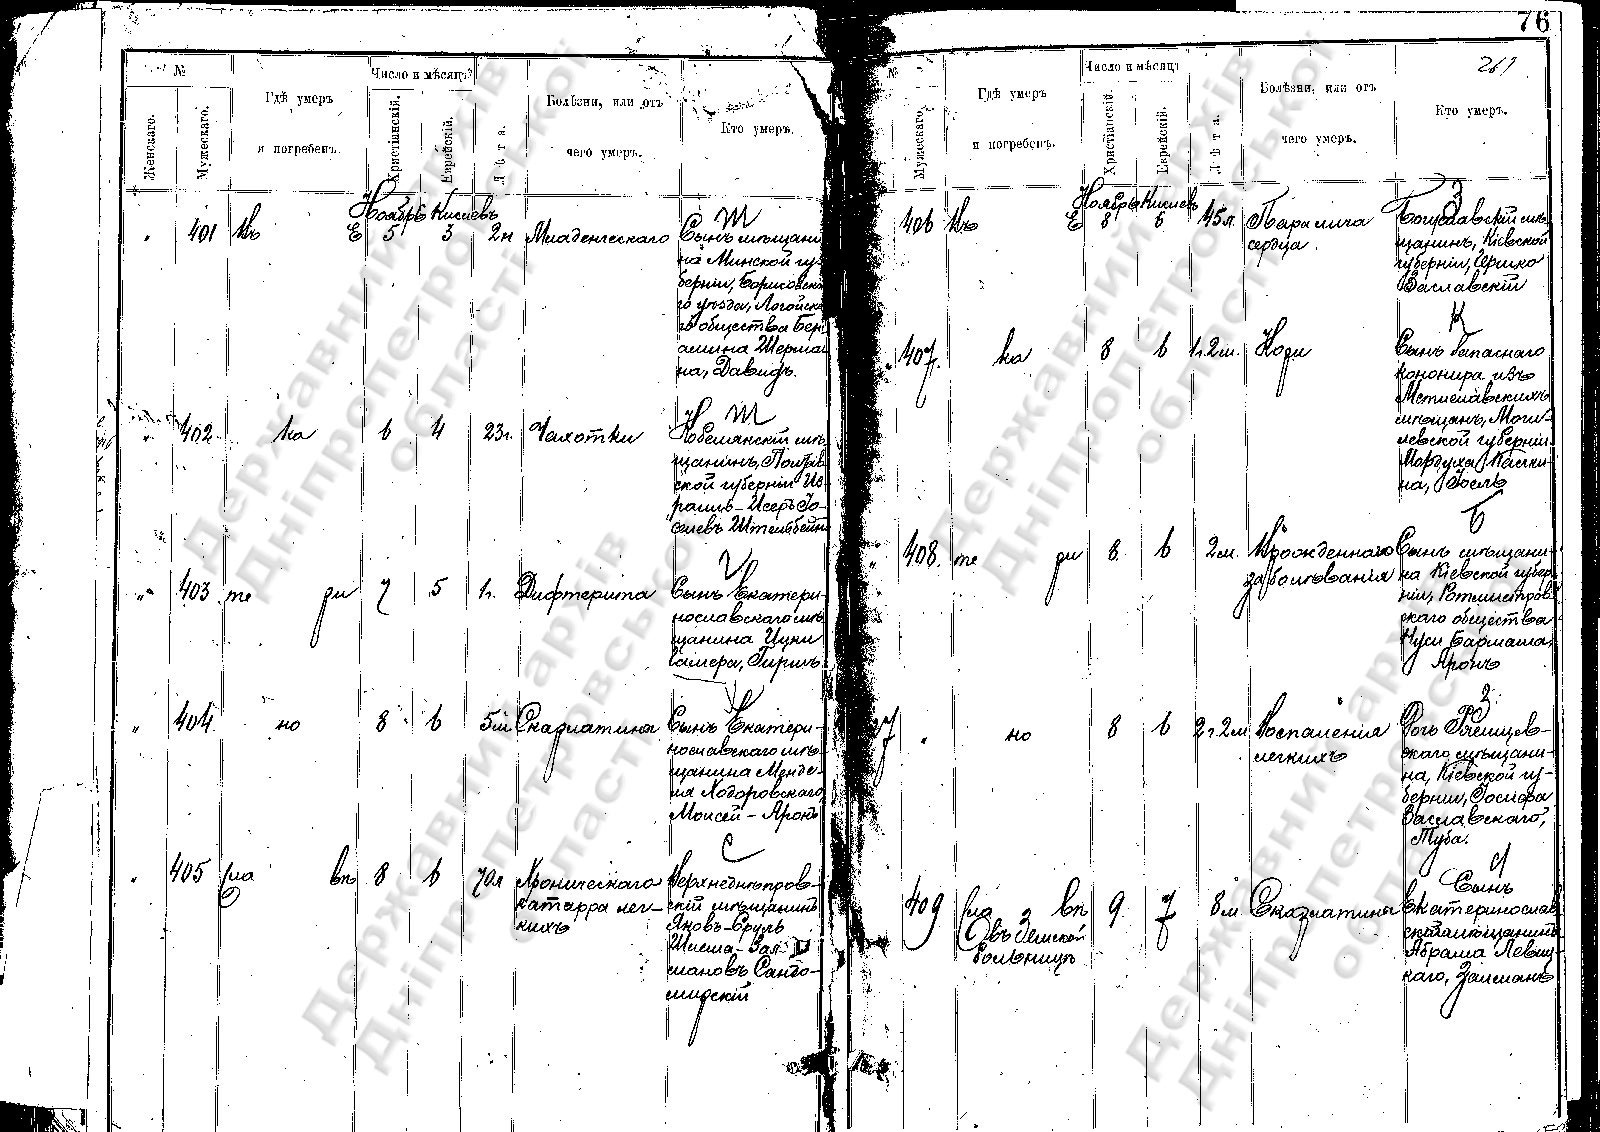 76
261
№
Женскаго.
Мужескаго.
Гдѣ умеръ
и погребенъ.
Число и мѣсяцъ
Христіанскій.
Еврейскій.
Лѣта.
Болѣзни, или отъ
чего умеръ.
Кто умеръ.
Ноябрь Кислевъ
" 401 Въ Е 5 3 2н Младенческаго
Ш
Сынъ мѣщани-
на Минской гу-
берніи, Борисовска-
го уѣзда, Логойска-
го общества Бен-
амина Шерма-
на, Давидъ.
" 402 ка 6 4 23г. Чахотки
Ш
Кобелякскій мѣ-
щанинъ, Полтав-
ской губерніи Из-
раиль-Исеръ Іо-
селевъ Штельбейнъ
" 403 те ри 7 5 1г. Дифтерита
Сынъ Екатери-
нославскаго мѣ-
щанина Ицки
Гиршъ
" 404 но 8 6 5м Скарлатина
Сынъ Екатери-
нославскаго мѣ-
щанина Менде-
ля Ходоровскаго
Моисей-Аронъ
" 405 сла въ 8 6 70л Хроническаго
катарра лег-
кихъ
С
Верхнеднѣпров-
скій мѣщанинъ
Яковъ-Сруль
Шлема-Зал-
мановъ Сандо-
мирскій
№
Мужескаго.
Гдѣ умеръ
и погребенъ.
Число и мѣсяцъ
Христіанскій.
Еврейскій.
Лѣта.
Болѣзни, или отъ
чего умеръ.
Кто умеръ.
Ноябрь Кислевъ
406 Въ Е 8 6 45л. Паралича
сердца
З
Богуславскій мѣ-
щанинъ, Кіевской
губерніи, Сершко
Заславскій
" 407 ка 8 6 1г.2м. Кори
К
Сынъ запаснаго
канонира изъ
Мстиславскихъ
мѣщанъ, Моги-
левской губерніи
Мордуха Каськи-
на, Іосель
" 408. те ри 8. 6 2м. Врожденнаго
заболѣванія
Б
Сынъ мѣщани-
на Кіевской губер-
ніи, Ротмистров-
скаго общества
Нуси Бармаша,
Аронъ
37 " но 8 6 2г.2м Воспаленія
легкихъ
З
Дочь Ржищев-
скаго мѣщани-
на, Кіевской гу-
берніи, Іосифа
Заславскаго,
Туба.
409 сла въ 9 7 8м Скарлатина
въ Земской
больницѣ
Л
Сынъ
Екатеринослав-
скаго мѣщанина
Абрама Левиц-
каго, Залманъ
Державний архів
Дніпропетровської
області
Державний архів
Дніпропетровської
області
Державний архів
Дніпропетровської
області
Державний архів
Дніпропетровської
області